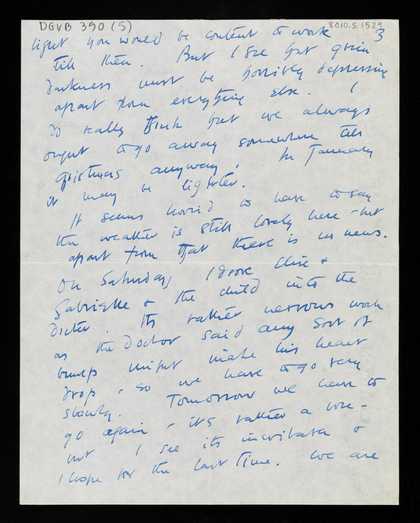 DGVB 390 (5)
8010.5.1529
3
light you would be content to wait
till then. But I see that given
darkness must be horribly depressing
apart from everything else. I
do really think that we always
ought to go away somewhere till
Xristmas anyway, in January
it may be lighter.
It seems horrid to have to say
the weather is still lovely here - but
apart from that there is no news.
On Saturday I drove &
Gabrielle & the child into the
Doctor. Its rather nervous work
as the Doctor said any sort of
bump might make his heart
drop, so we have to go very
slowly. Tomorrow we have to
go again, its rather a
but I see its inevitable &
I hope for the last time. We are